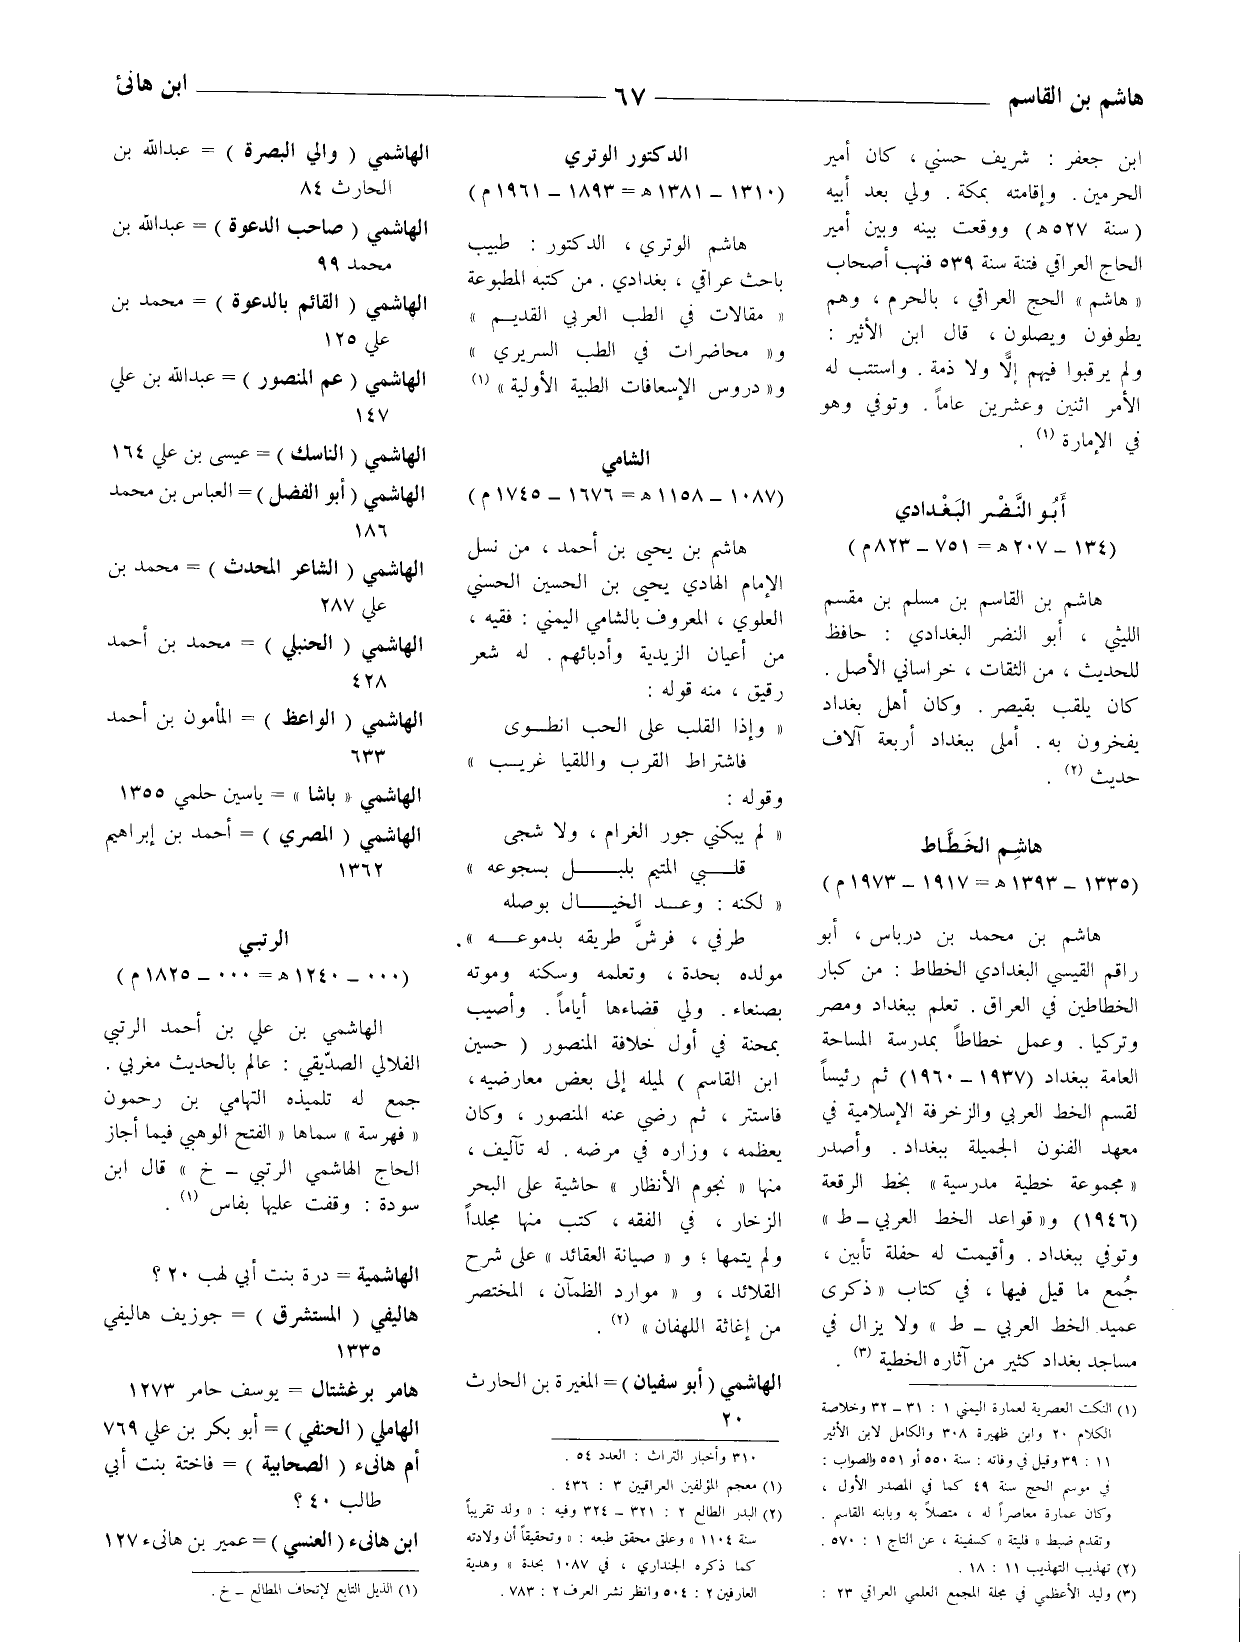 هاشم بن القاسم
٦٧
ابن هانئ
ابن جعفر : شريف حسني ، كان أمير
الحرمين . وإقامته بمكة . ولي بعد أبيه
(سنة ٥٢٧ هـ) ووقعت بينه وبين أمير
الحاج العراقي فتنة سنة ٥٣٩ فنهب أصحاب
« هاشم » الحج العراقي ، بالحرم ، وهم
يطوفون ويصلون ، قال ابن الأثير :
ولم يرقبوا فيهم إلًّا ولا ذمة . واستتب له
الأمر اثنين وعشرين عاماً . وتوفي وهو
في الإمارة (١) .
أَبُو النَّضْر البَغْدادي
(١٣٤ – ٢٠٧ هـ = ٧٥١ – ٨٢٣ م)
هاشم بن القاسم بن مسلم بن مقسم
الليثي ، أبو النضر البغدادي : حافظ
للحديث ، من الثقات ، خراساني الأصل .
كان يلقب بقيصر . وكان أهل بغداد
يفخرون به . أملى ببغداد أربعة آلاف
حديث (٢) .
هاشِم الخَطَّاط
(١٣٣٥ – ١٣٩٣ هـ = ١٩١٧ – ١٩٧٣ م)
هاشم بن محمد بن درباس ، أبو
راقم القيسي البغدادي الخطاط : من كبار
الخطاطين في العراق . تعلم ببغداد ومصر
وتركيا . وعمل خطاطاً بمدرسة المساحة
العامة ببغداد (١٩٣٧ – ١٩٦٠) ثم رئيساً
لقسم الخط العربي والزخرفة الإسلامية في
معهد الفنون الجميلة ببغداد . وأصدر
« مجموعة خطية مدرسية » بخط الرقعة
(١٩٤٦) و« قواعد الخط العربي – ط »
وتوفي ببغداد . وأقيمت له حفلة تأبين ،
جُمع ما قيل فيها ، في كتاب « ذكرى
عميد الخط العربي – ط » ولا يزال في
مساجد بغداد كثير من آثاره الخطية (٣) .
(١) النكت العصرية لعمارة اليمني ١ : ٣١ – ٣٢ وخلاصة
الكلام ٢٠ وابن ظهيرة ٣٠٨ والكامل لابن الأثير
١١ : ٣٩ وقيل في وفاته : سنة ٥٥٠ أو ٥٥١ والصواب :
في موسم الحج سنة ٤٩ كما في المصدر الأول ،
وكان عمارة معاصراً له ، متصلاً به وبابنه القاسم .
وتقدم ضبط « فليتة » كسفينة ، عن التاج ١ : ٥٧٠ .
(٢) تهذيب التهذيب ١١ : ١٨ .
(٣) وليد الأعظمي في مجلة المجمع العلمي العراقي ٢٣ :
الدكتور الوتري
(١٣١٠ – ١٣٨١ هـ = ١٨٩٣ – ١٩٦١ م)
هاشم الوتري ، الدكتور : طبيب
باحث عراقي ، بغدادي . من كتبه المطبوعة
« مقالات في الطب العربي القديم »
و« محاضرات في الطب السريري »
و« دروس الإسعافات الطبية الأولية » (١)
الشامي
(١٠٨٧ – ١١٥٨ هـ = ١٦٧٦ – ١٧٤٥ م)
هاشم بن يحيى بن أحمد ، من نسل
الإمام الهادي يحيى بن الحسين الحسني
العلوي ، المعروف بالشامي اليمني : فقيه ،
من أعيان الزيدية وأدبائهم . له شعر
رقيق ، منه قوله :
« وإذا القلب على الحب انطوى
فاشتراط القرب واللقيا غريب »
وقوله :
« لم يبكني جور الغرام ، ولا شجى
قلبي المتيم بلبل بسجوعه »
« لكنه : وعد الخيال بوصله
طرفي ، فرشَّ طريقه بدموعه » .
مولده بحدة ، وتعلمه وسكنه وموته
بصنعاء . ولي قضاءها أياماً . وأصيب
بمحنة في أول خلافة المنصور ( حسين
ابن القاسم ) لميله إلى بعض معارضيه ،
فاستتر ، ثم رضي عنه المنصور ، وكان
يعظمه ، وزاره في مرضه . له تآليف ،
منها « نجوم الأنظار » حاشية على البحر
الزخار ، في الفقه ، كتب منها مجلداً
ولم يتمها ؛ و « صيانة العقائد » على شرح
القلائد ، و « موارد الظمآن ، المختصر
من إغاثة اللهفان » (٢) .
الهاشمي ( أبو سفيان ) = المغيرة بن الحارث
٢٠
٣١٠ وأخبار التراث : العدد ٥٤ .
(١) معجم المؤلفين العراقيين ٣ : ٤٣٦ .
(٢) البدر الطالع ٢ : ٣٢١ – ٣٢٤ وفيه : « ولد تقريباً
سنة ١١٠٤ » وعلق محقق طبعه : « وتحقيقاً أن ولادته
كما ذكره الجنداري ، في ١٠٨٧ بحدة » وهدية
العارفين ٢ : ٥٠٤ وانظر نشر العرف ٢ : ٧٨٣ .
الهاشمي ( والي البصرة ) = عبدالله بن
الحارث ٨٤
الهاشمي ( صاحب الدعوة ) = عبدالله بن
محمد ٩٩
الهاشمي ( القائم بالدعوة ) = محمد بن
علي ١٢٥
الهاشمي ( عم المنصور ) = عبدالله بن علي
١٤٧
الهاشمي ( الناسك ) = عيسى بن علي ١٦٤
الهاشمي ( أبو الفضل ) = العباس بن محمد
١٨٦
الهاشمي ( الشاعر المحدث ) = محمد بن
علي ٢٨٧
الهاشمي ( الحنبلي ) = محمد بن أحمد
٤٢٨
الهاشمي ( الواعظ ) = المأمون بن أحمد
٦٣٣
الهاشمي « باشا » = ياسين حلمي ١٣٥٥
الهاشمي ( المصري ) = أحمد بن إبراهيم
١٣٦٢
الرتبي
(٠٠٠ – ١٢٤٠ هـ = ٠٠٠ – ١٨٢٥ م)
الهاشمي بن علي بن أحمد الرتبي
الفلالي الصدّيقي : عالم بالحديث مغربي .
جمع له تلميذه التهامي بن رحمون
« فهرسة » سماها « الفتح الوهبي فيما أجاز
الحاج الهاشمي الرتبي – خ » قال ابن
سودة : وقفت عليها بفاس (١) .
الهاشمية = درة بنت أبي لهب ٢٠ ؟
هاليفي ( المستشرق ) = جوزيف هاليفي
١٣٣٥
هامر برغشتال = يوسف حامر ١٢٧٣
الهاملي ( الحنفي ) = أبو بكر بن علي ٧٦٩
أم هانىء ( الصحابية ) = فاختة بنت أبي
طالب ٤٠ ؟
ابن هانىء ( العنسي ) = عمير بن هانىء ١٢٧
(١) الذيل التابع لإتحاف المطالع – خ .